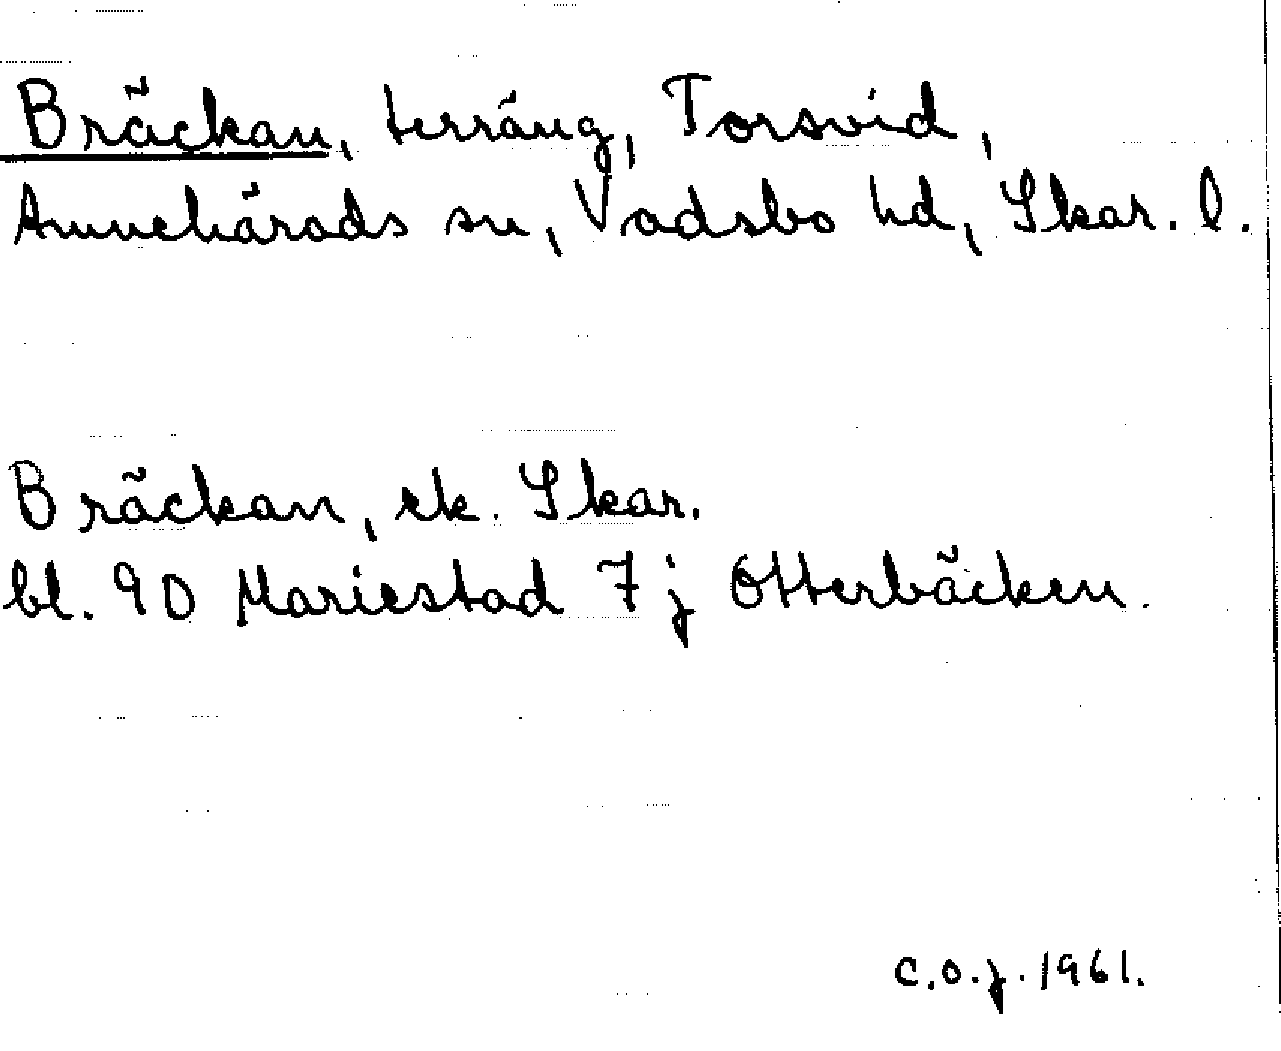 Bräckan, terräng, Torsvid,
Amnehärads sn, Vadsbo hd, Skar. l.
Bräckan, ek. Skar.
bl. 90 Mariestad 7 j Otterbäcken.
C.O.J. 1961.